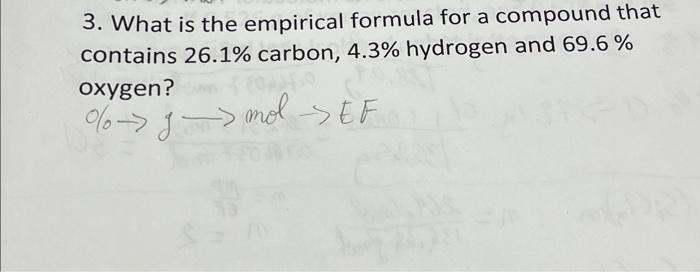 3. What is the empirical formula for a compound that
contains 26.1% carbon, 4.3% hydrogen and 69.6 %
oxygen?
% → g → mol → EF